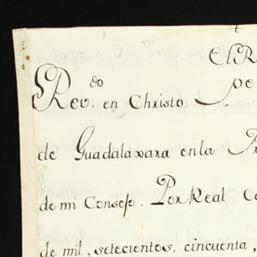 El R
Rev.do en Christo P.e
de Guadalaxara en la Pr
de mi Consejo. Por Real Ce
de mil, setecientos, cincuenta,